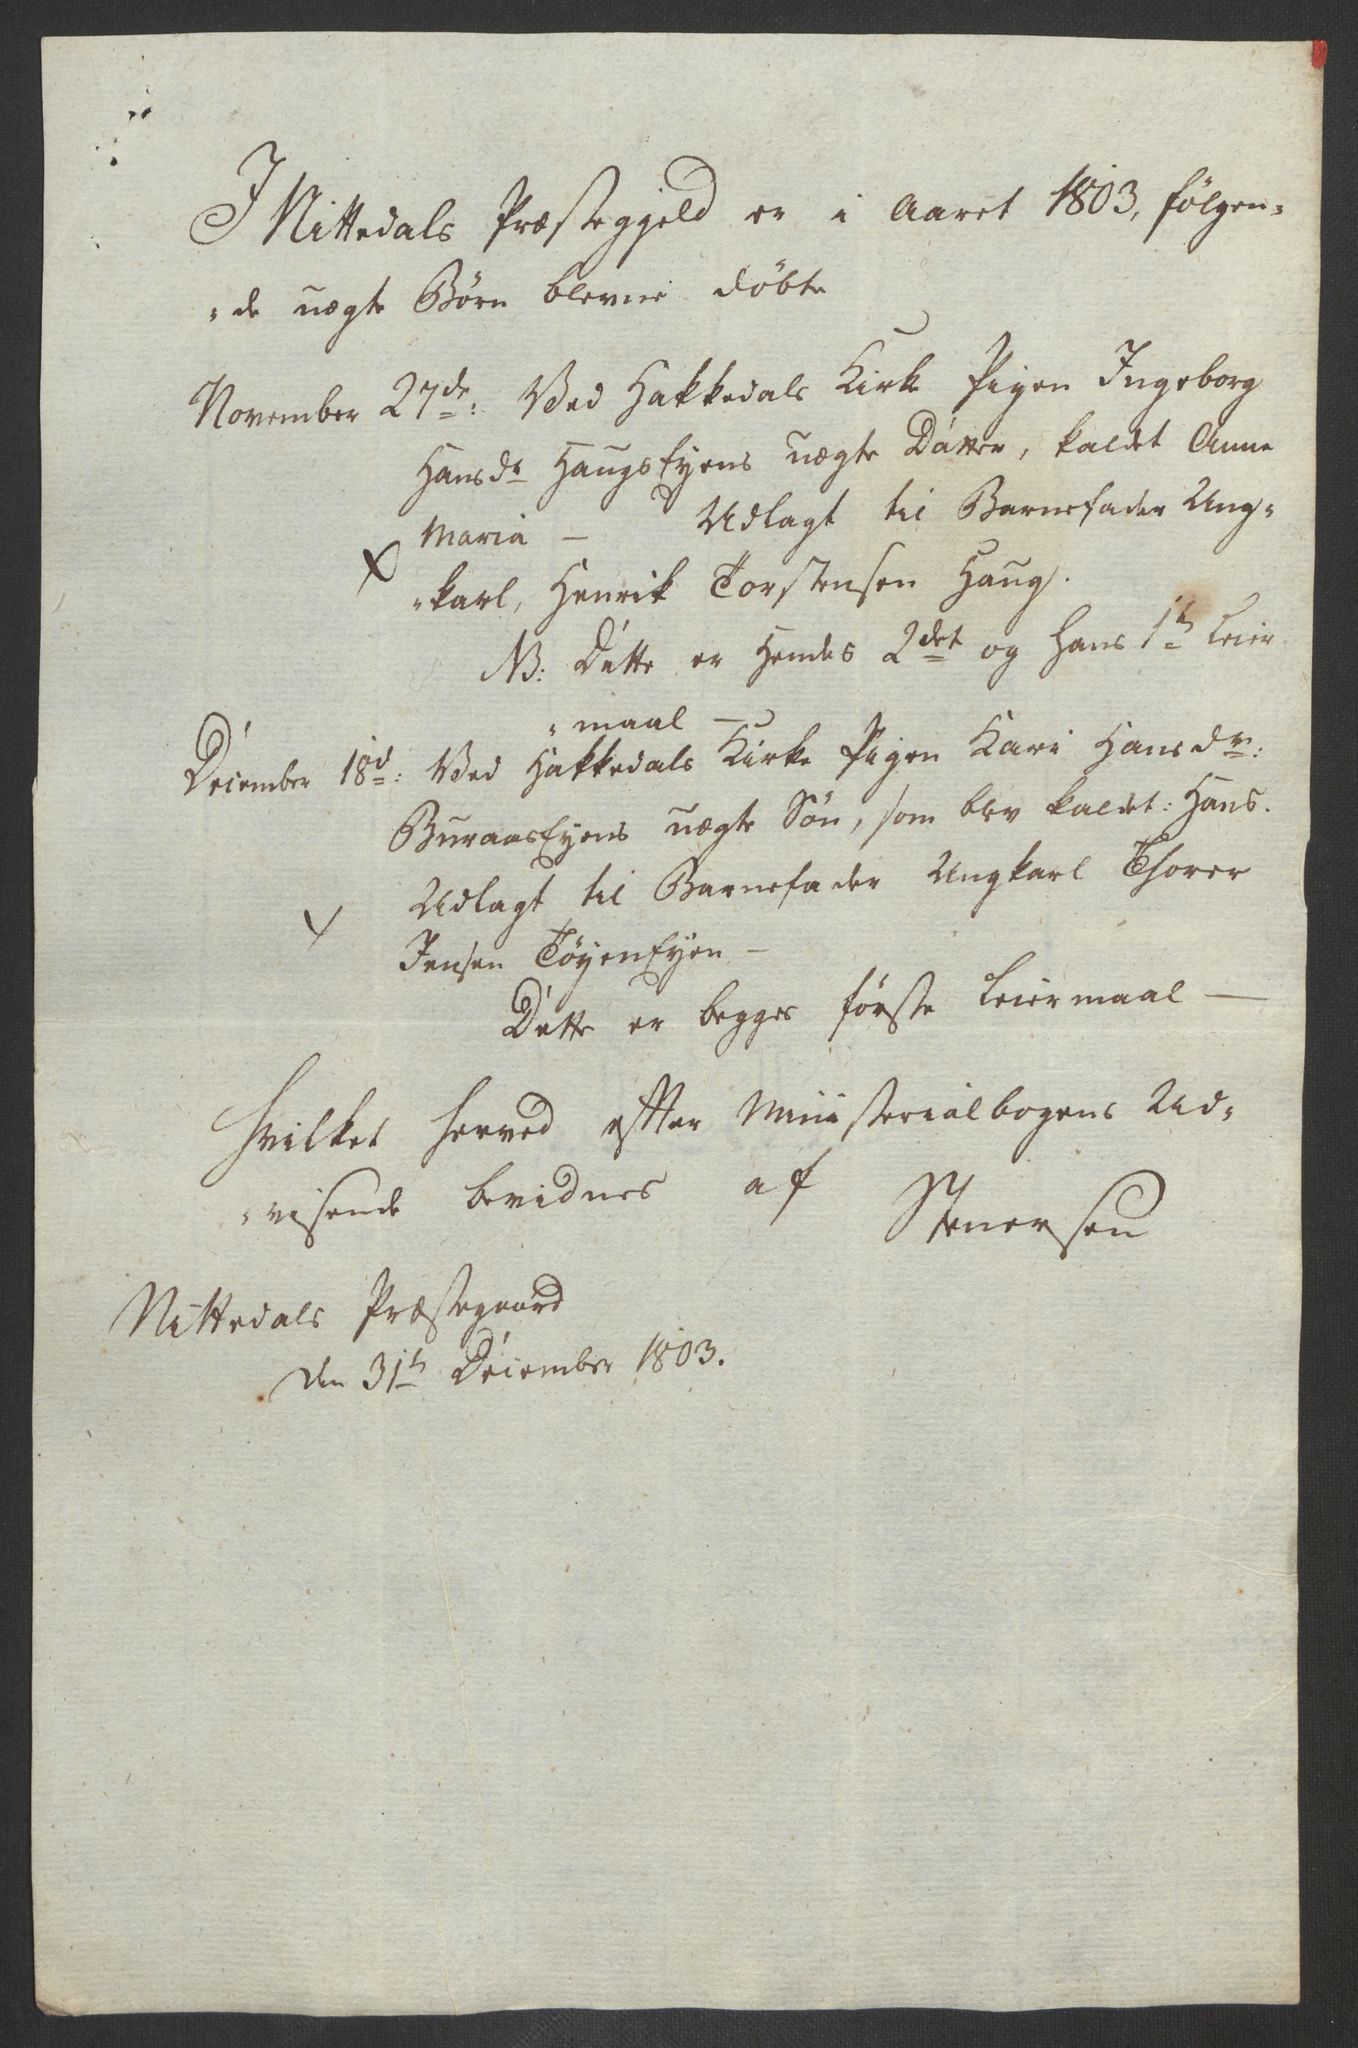 I Nittedals Præstegjeld er i Aaret 1803, følgen=
=de uægte Børn blevne døbte
November 27de: Ved Hakkedals Kirke Pigen Ingeborg
Hansdr HaugsEyens uægte Datter, kaldet Anne
Maria — Udlagt til Barnefader Ung=
=karl, Henrik Torstensen Haug.
NB: Dette er Hendes 2det og Hans 1te Leier
=maal —
December 18d: Ved Hakkedals Kirke Pigen Kari Hansdr:
BuraasEyens uægte Søn, som blev kaldet: Hans.
Udlagt til Barnefader Ungkarl Thorer
Jensen TøyenEyen —
Dette er begges første Leiermaal —
Hvilket herved efter Ministerialbogens Ud=
=visende bevidnes af Stenersen
Nittedals Præstegaard
den 31te December 1803.